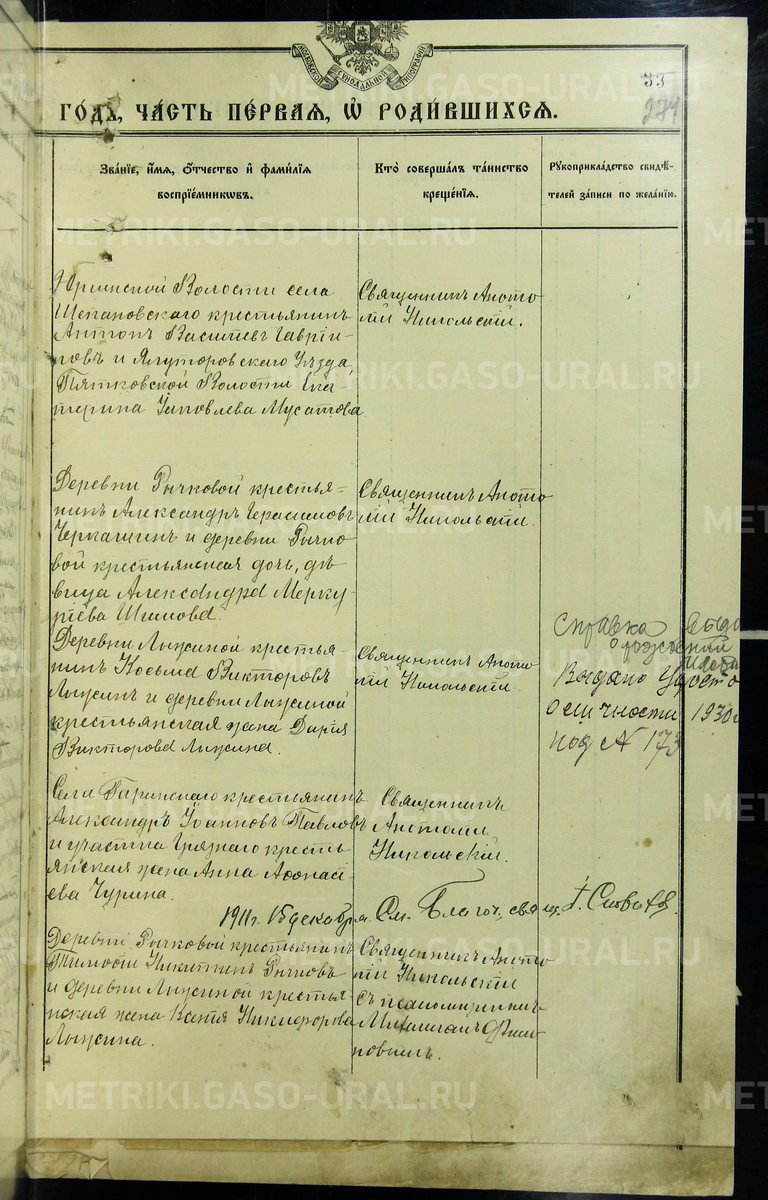 МОСКОВСКОЙ СѴНОДАЛЬНОЙ ТИПОГРАФІИ
33
274
ГОДЪ, ЧАСТЬ ПЕРВАЯ, Ѡ РОДИВШИХСЯ.
Званіе, имя, отчество и фамилія
воспріемниковъ.
Кто совершалъ таинство
крещенія.
Рукоприкладство свидѣ-
телей записи по желанію.
Юрминской Волости села
Щепановскаго крестьянинъ
Антонъ Васильевъ Гаври-
ловъ и Ялуторовскаго Уѣзда,
Пятковской Волости Ека-
терина Яковлева Мусатова
Священникъ Анато
лій Никольскій.
Деревни Рычковой крестья-
нинъ Александръ Герасимовъ
Черкашинъ и деревни Рычко
вой крестьянская дочь, дѣ
вица Александра Мерку-
ріева Шишова.
Священникъ Анато
лій Никольскій.
Деревни Лыжиной крестья-
нинъ Косьма Викторовъ
Лыжинъ и деревни Лыжиной
крестьянская жена Дарія
Викторова Лыжина.
Священникъ Анато
лій Никольскій.
Справка выда
о рождении
Выдано Удосто
о личности 1930г
под № 173
Села Гаринскаго крестьянинъ
Александръ Іоанновъ Павловъ
и участка Грязнаго кресть
янская жена Анна Аѳонасі
ева Чурина.
Священникъ
Анатолій
Никольскій.
1911г. 15 декабря См. Благоч. свящ.
Деревни Рычковой крестьянинъ
Тимофій Никитинъ Рычковъ
и деревни Лыжиной крестья
нская жена Капія Никифорова
Лыжина.
Священникъ Анато
лій Никольскій
съ псаломщикомъ
METRIKI.GASO-URAL.RU